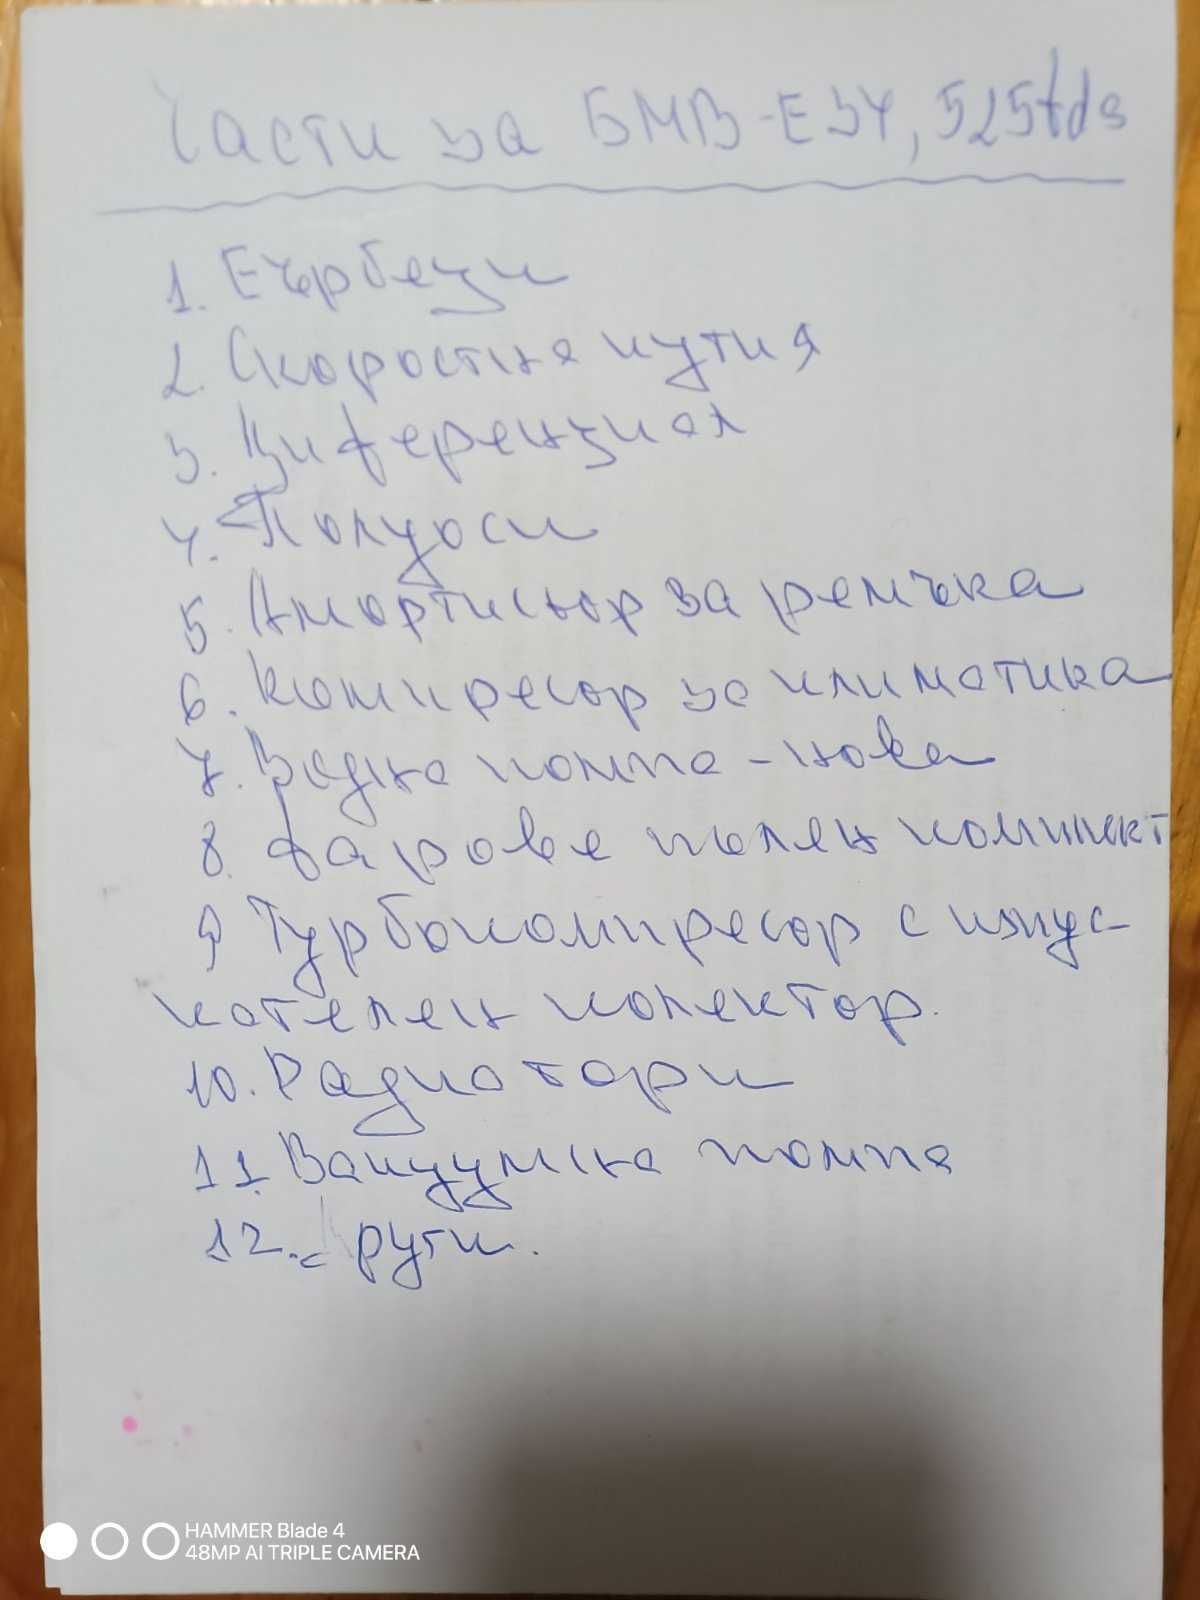 Части за БМВ-Е34, 525tds
1. Еърбези
2. Скоростна кутия
3. Диференциал
4. Полуоси
5. Амортисьор за ремъка
6. Компресор за климатика
7. Водна помпа - нова
8. Фарове пълен комплект
9 Турбокомпресор с изпус-
кателен колектор.
10. Радиатори
11. Вакуумна помпа
12. рути.
HAMMER Blade 4
48MP AI TRIPLE CAMERA